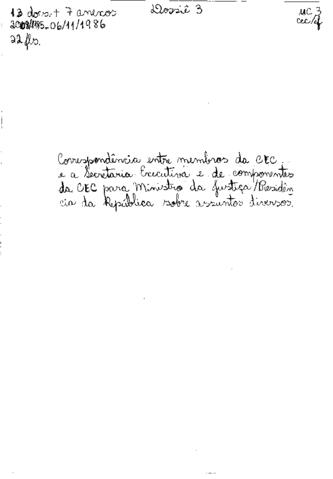 13 docs + 7 anexos
Dossiê 3
UC 3
-06/11/1986
22 fls.
Correspondência entre membros da CEC
e a Secretaria Executiva e de componentes
da CEC para Ministro da Justiça/Presidên
cia da República sobre assuntos diversos.